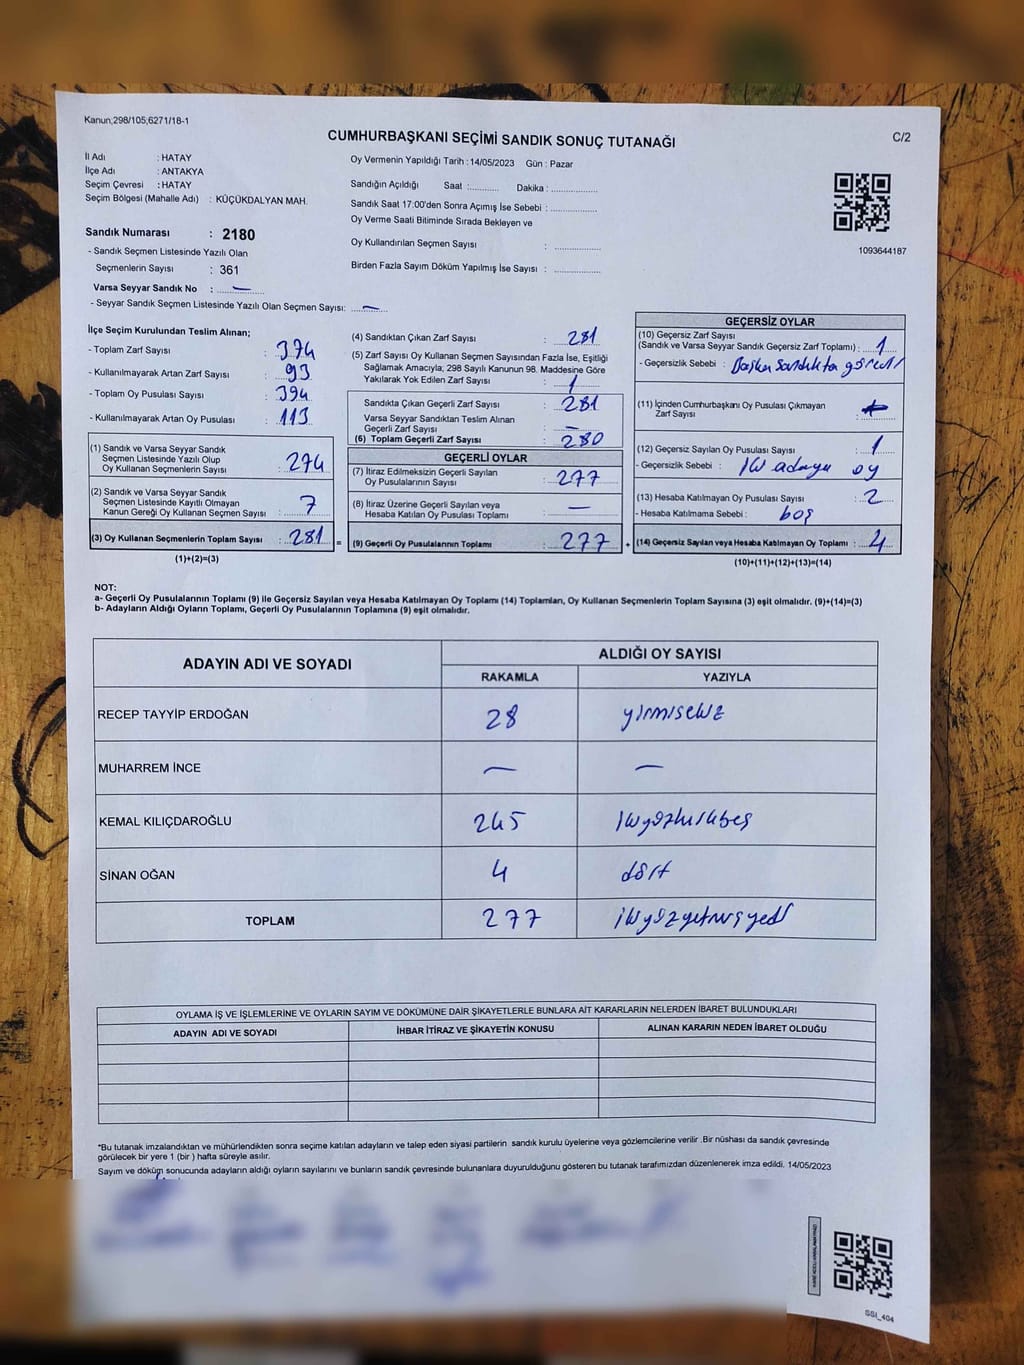 Kanun;298/105;6271/18-1
C/2
CUMHURBAŞKANI SEÇİMİ SANDIK SONUÇ TUTANAĞI
İl Adı : HATAY
İlçe Adı : ANTAKYA
Seçim Çevresi : HATAY
Seçim Bölgesi (Mahalle Adı) : KÜÇÜKDALYAN MAH.
Sandık Numarası : 2180
- Sandık Seçmen Listesinde Yazılı Olan
Seçmenlerin Sayısı : 361
Varsa Seyyar Sandık No : —
- Seyyar Sandık Seçmen Listesinde Yazılı Olan Seçmen Sayısı: —
Oy Vermenin Yapıldığı Tarih : 14/05/2023 Gün : Pazar
Sandığın Açıldığı Saat :.......... Dakika : ................
Sandık Saat 17:00'den Sonra Açımış İse Sebebi : ................
Oy Verme Saati Bitiminde Sırada Bekleyen ve
Oy Kullandırılan Seçmen Sayısı : ................
Birden Fazla Sayım Döküm Yapılmış İse Sayısı : ................
1093644187
İlçe Seçim Kurulundan Teslim Alınan;
- Toplam Zarf Sayısı : 374
- Kullanılmayarak Artan Zarf Sayısı : 93
- Toplam Oy Pusulası Sayısı : 394
- Kullanılmayarak Artan Oy Pusulası : 113
(1) Sandık ve Varsa Seyyar Sandık
Seçmen Listesinde Yazılı Olup
Oy Kullanan Seçmenlerin Sayısı : 274
(2) Sandık ve Varsa Seyyar Sandık
Seçmen Listesinde Kayıtlı Olmayan
Kanun Gereği Oy Kullanan Seçmen Sayısı : 7
(3) Oy Kullanan Seçmenlerin Toplam Sayısı : 281 =
(1)+(2)=(3)
(4) Sandıktan Çıkan Zarf Sayısı : 281
(5) Zarf Sayısı Oy Kullanan Seçmen Sayısından Fazla İse, Eşitliği
Sağlamak Amacıyla; 298 Sayılı Kanunun 98. Maddesine Göre
Yakılarak Yok Edilen Zarf Sayısı : 1
Sandıkta Çıkan Geçerli Zarf Sayısı : 281
Varsa Seyyar Sandıktan Teslim Alınan
Geçerli Zarf Sayısı : —
(6) Toplam Geçerli Zarf Sayısı : 280
GEÇERLİ OYLAR
(7) İtiraz Edilmeksizin Geçerli Sayılan
Oy Pusulalarının Sayısı : 277
(8) İtiraz Üzerine Geçerli Sayılan veya
Hesaba Katılan Oy Pusulası Toplamı : —
(9) Geçerli Oy Pusulalarının Toplamı : 277 +
GEÇERSİZ OYLAR
(10) Geçersiz Zarf Sayısı
(Sandık ve Varsa Seyyar Sandık Geçersiz Zarf Toplamı) : 1
- Geçersizlik Sebebi : Başka sandıkta görevli
(11) İçinden Cumhurbaşkanı Oy Pusulası Çıkmayan
Zarf Sayısı :
(12) Geçersiz Sayılan Oy Pusulası Sayısı : 1
- Geçersizlik Sebebi : iki adaya oy
(13) Hesaba Katılmayan Oy Pusulası Sayısı : 2
- Hesaba Katılmama Sebebi : boş
(14) Geçersiz Sayılan veya Hesaba Katılmayan Oy Toplamı : 4
(10)+(11)+(12)+(13)=(14)
NOT:
a- Geçerli Oy Pusulalarının Toplamı (9) ile Geçersiz Sayılan veya Hesaba Katılmayan Oy Toplamı (14) Toplamları, Oy Kullanan Seçmenlerin Toplam Sayısına (3) eşit olmalıdır. (9)+(14)=(3)
b- Adayların Aldığı Oyların Toplamı, Geçerli Oy Pusulalarının Toplamına (9) eşit olmalıdır.
ADAYIN ADI VE SOYADI
ALDIĞI OY SAYISI
RAKAMLA YAZIYLA
RECEP TAYYİP ERDOĞAN 28 yirmisekiz
MUHARREM İNCE — —
KEMAL KILIÇDAROĞLU 245 ikiyüzkırkbeş
SİNAN OĞAN 4 dört
TOPLAM 277 ikiyüzyetmişyedi
OYLAMA İŞ VE İŞLEMLERİNE VE OYLARIN SAYIM VE DÖKÜMÜNE DAİR ŞİKAYETLERLE BUNLARA AİT KARARLARIN NELERDEN İBARET BULUNDUKLARI
ADAYIN ADI VE SOYADI İHBAR İTİRAZ VE ŞİKAYETİN KONUSU ALINAN KARARIN NEDEN İBARET OLDUĞU
*Bu tutanak imzalandıktan ve mühürlendikten sonra seçime katılan adayların ve talep eden siyasi partilerin sandık kurulu üyelerine veya gözlemcilerine verilir .Bir nüshası da sandık çevresinde
görülecek bir yere 1 (bir ) hafta süreyle asılır.
Sayım ve döküm sonucunda adayların aldığı oyların sayılarını ve bunların sandık çevresinde bulunanlara duyurulduğunu gösteren bu tutanak tarafımızdan düzenlenerek imza edildi. 14/05/2023
SSI_404